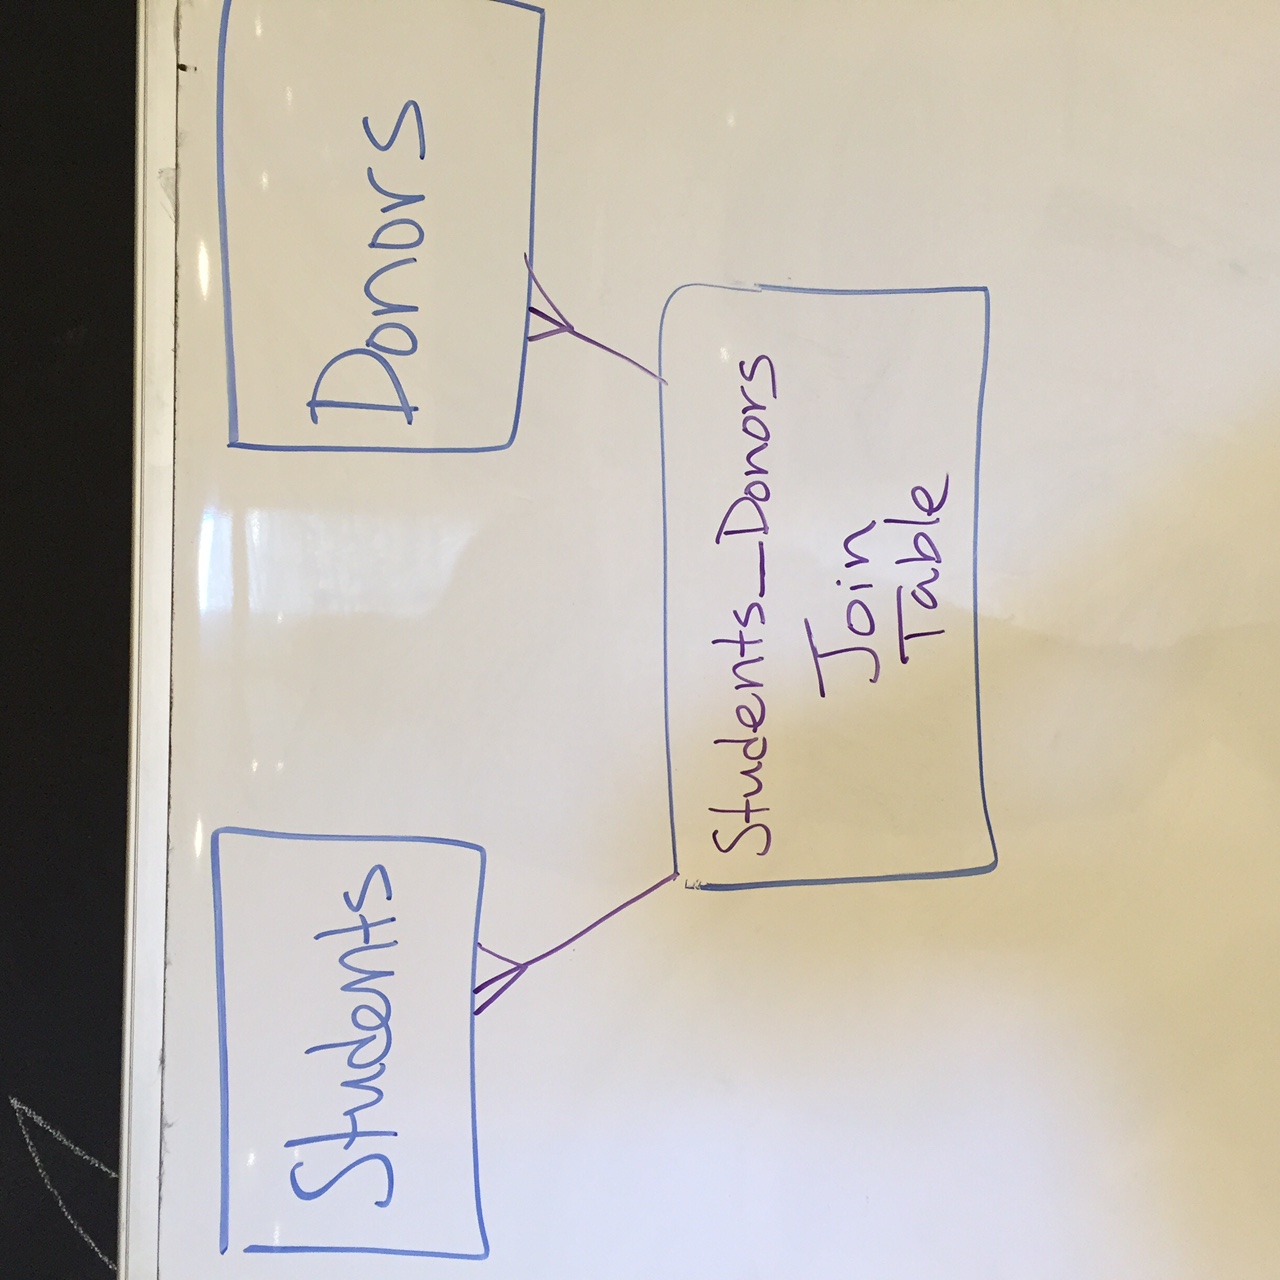 Students
Donors
Students_Donors
Join
Table